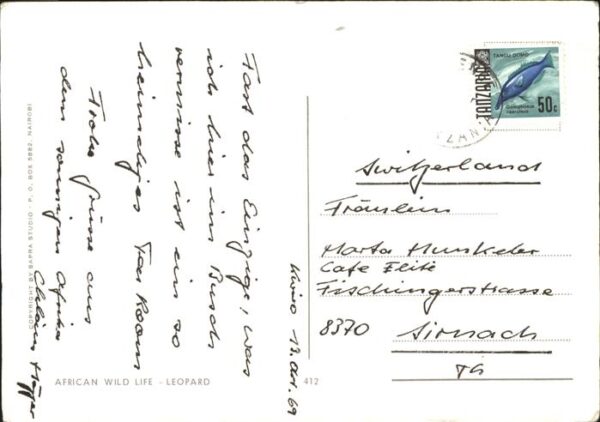 Fast das Einzige, was
ich hier im Busch
vermisse ist ein so
heimeliges Tea Room
Frohe Grüsse aus
dem sonnigen Afrika
13. Okt. 69
COPYRIGHT BY SAPRA STUDIO - P. O. BOX 5882, NAIROBI
AFRICAN WILD LIFE - LEOPARD
412
TANGU DOMO
TANZANIA
50c
Switzerland
Fräulein
Marta Hunkeler
Cafe Elite
Fischingerstrasse
8370 Sirnach
TG